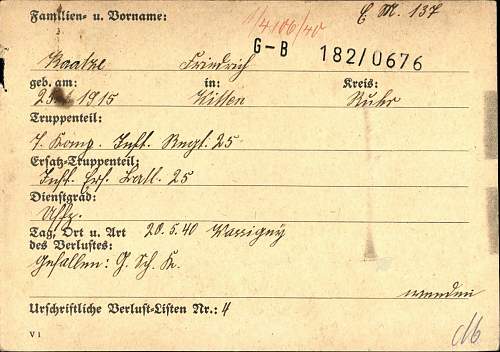 Familien- u. Vorname: 1/4106/40 E. M. 137
G-B 182/0676
Kaatze Friedrich
geb. am: in: Kreis:
1915 Witten Ruhr
Truppenteil:
7. Komp. Inft. Regt. 25
Ersatz-Truppenteil:
Inft. Ers. Batl. 25
Dienstgrad:
Uffz.
Tag, Ort u. Art 20.5.40 Wassigny
des Verlustes:
Gefallen: G. Sch. K.
wenden
Urschriftliche Verlust-Listen Nr.: 4
V 1